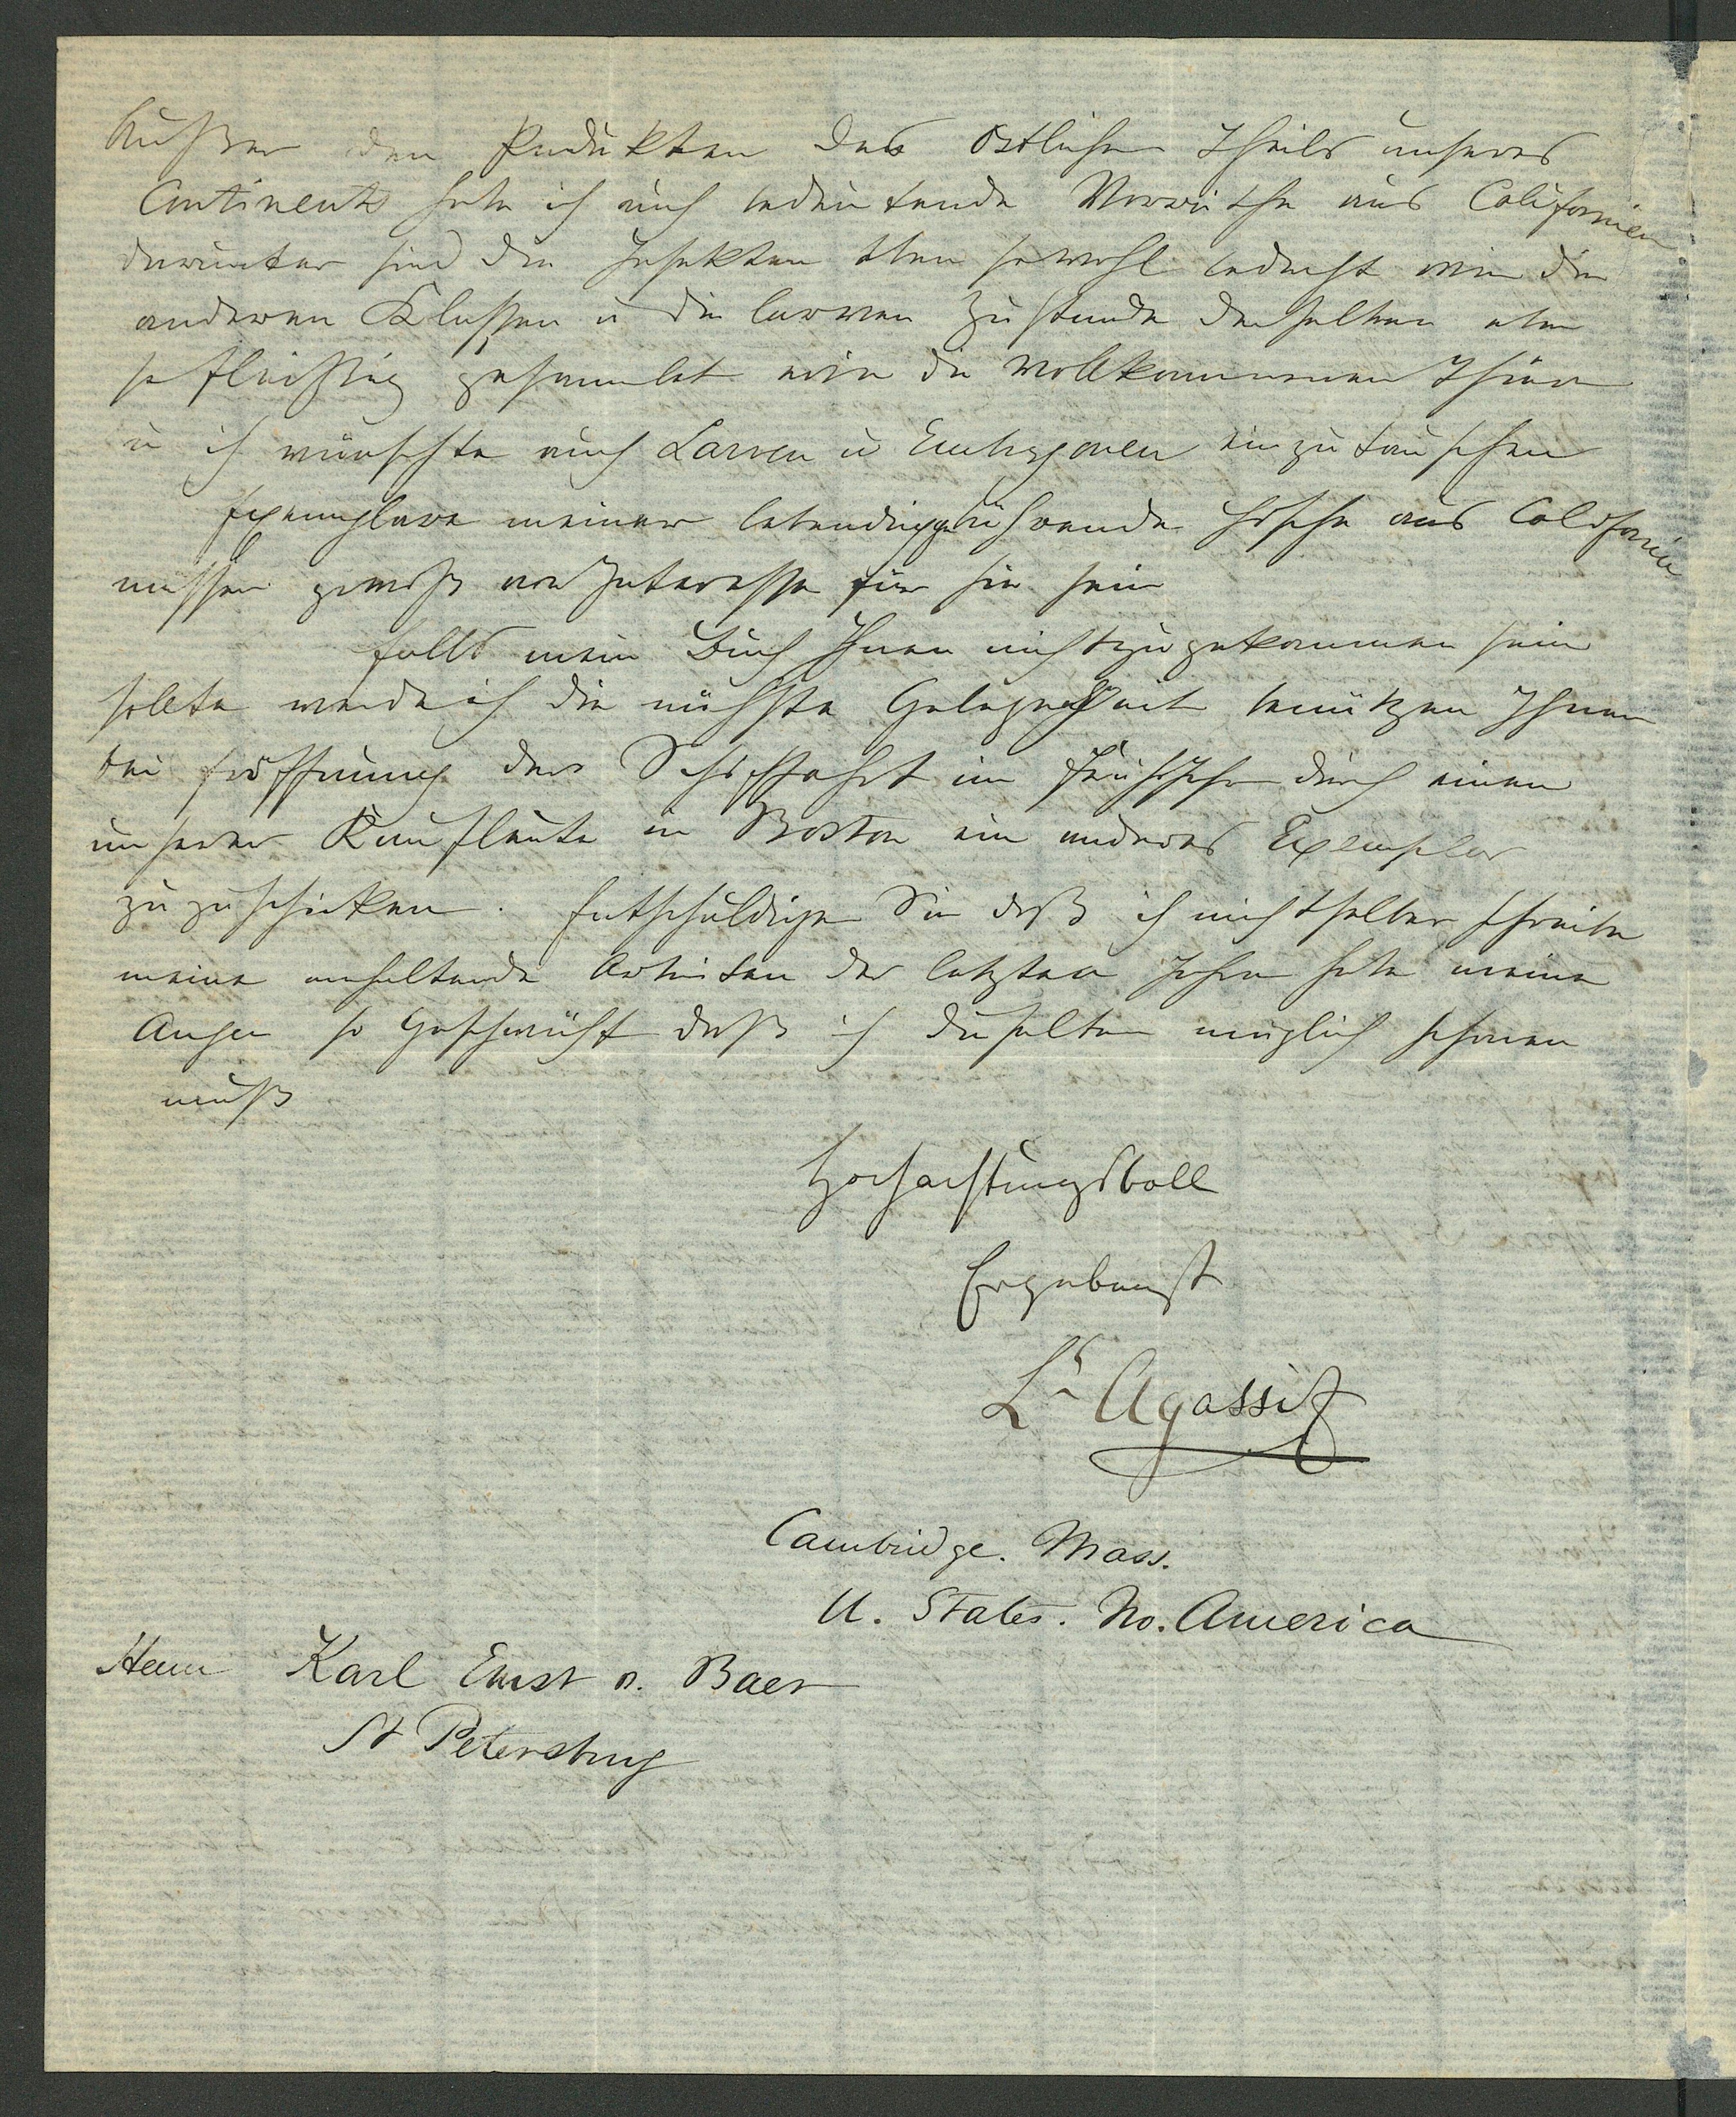 Außer den Produkten des östlichen Theils unseres
Continents habe ich auch bedeutende Vorräthe aus Californien
darunter sind die Insekten eben sowohl bedacht wie die
anderen Klassen u die larven Zustande derselben eben
so fleißig gesammlet wie die vollkommenen Thiere
u ich wünschte auch Larven u Embryonen einzutauschen
Exemplare meiner lebendiggebährende Fische aus Californien
müssen gewiß von Interesse für sie sein
Falls mein Buch Ihnen nicht zugekommen sein
sollte werde ich die nächste Gelegenheit benützen Ihnen
bei Eröffnung der Schifffahrt im Frühjahr durch einen
unserer Kaufleute in Boston ein anderes Exemplar
zuzuschicken. Entschuldigen Sie daß ich nicht selber schreibe
meine anhaltende Arbeiten der letzten Jahre habe meine
Augen so geschwächt daß ich dieselben möglich schonen
muß
Hochachtungsvoll
Ergebenst
Ls Agassiz
Cambridge. Mass.
U. States. No. America
Herrn Karl Ernst v. Baer
St Petersburg